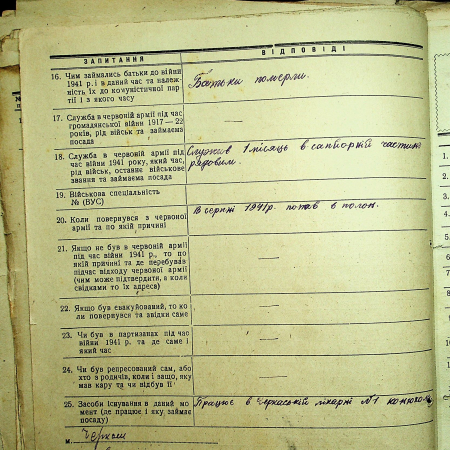 ЗАПИТАННЯ
ВІДПОВІДІ
16. Чим займались батьки до війни
1941 р. і в даний час та належ-
ність їх до комуністичної пар-
тії і з якого часу
Батьки померли.
17. Служба в червоній армії під час
громадянської війни 1917—22
років, рід військ та займаєма
посада
—
18. Служба в червоній армії під
час війни 1941 року, який час,
рід військ, останнє військове
звання та займаєма посада
Служив 1 місяць в саперній частині
рядовим.
19. Військова спеціальність
№ (ВУС)
20. Коли повернувся з червоної
армії та по якій причині
В серпні 1941 р. попав в полон.
21. Якщо не був в червоній армії
під час війни 1941 р., то по
якій причині та де перебував
підчас відходу червоної армії
(чим може підтвердити, а коли
свідками то їх адреса)
—
22. Якщо був евакуйований, то ко-
ли повернувся та звідки саме
—
23. Чи був в партизанах під час
війни 1941 р. та де саме і
який час
—
24. Чи був репресований сам, або
хто з родичів, коли і защо, яку
мав кару та чи відбув її
—
25. Засоби існування в даний мо-
мент (де працює і яку займає
посаду)
Працює в Черкаській лікарні №1 конюхом
м. Черкаси